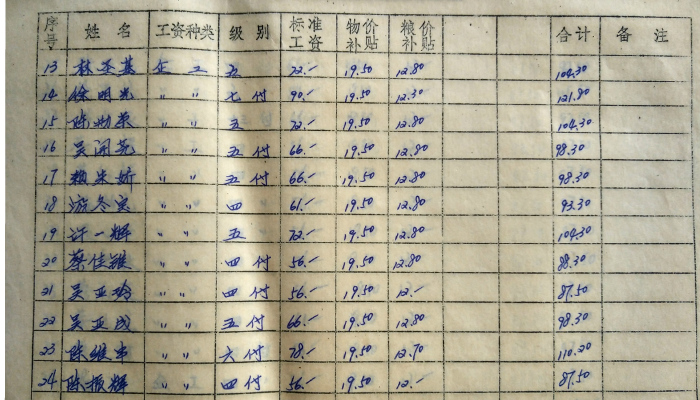 序号 姓名 工资种类 级别 标准工资 物价补贴 粮价补贴 合计 备注
13 林圣基 企工 五 72.- 19.50 12.80 104.30
14 徐明光 〃 〃 七付 90.- 19.50 12.30 121.80
15 陈 荣 〃 〃 五 72.- 19.50 12.80 104.30
16 吴开尧 〃 〃 五付 66.- 19.50 12.80 98.30
17 赖朱娇 〃 〃 五付 66.- 19.50 12.80 98.30
18 游冬 〃 〃 四 61.- 19.50 12.80 93.30
19 许一辉 〃 〃 五 72.- 19.50 12.80 104.30
20 蔡佳 〃 〃 四付 56.- 19.50 12.80 88.30
21 吴亚玲 〃 〃 四付 56.- 19.50 12.- 87.50
22 吴亚成 〃 〃 五付 66.- 19.50 12.80 98.30
23 陈维 〃 〃 六付 78.- 19.50 12.70 110.20
24 陈振辉 〃 〃 四付 56.- 19.50 12.- 87.50